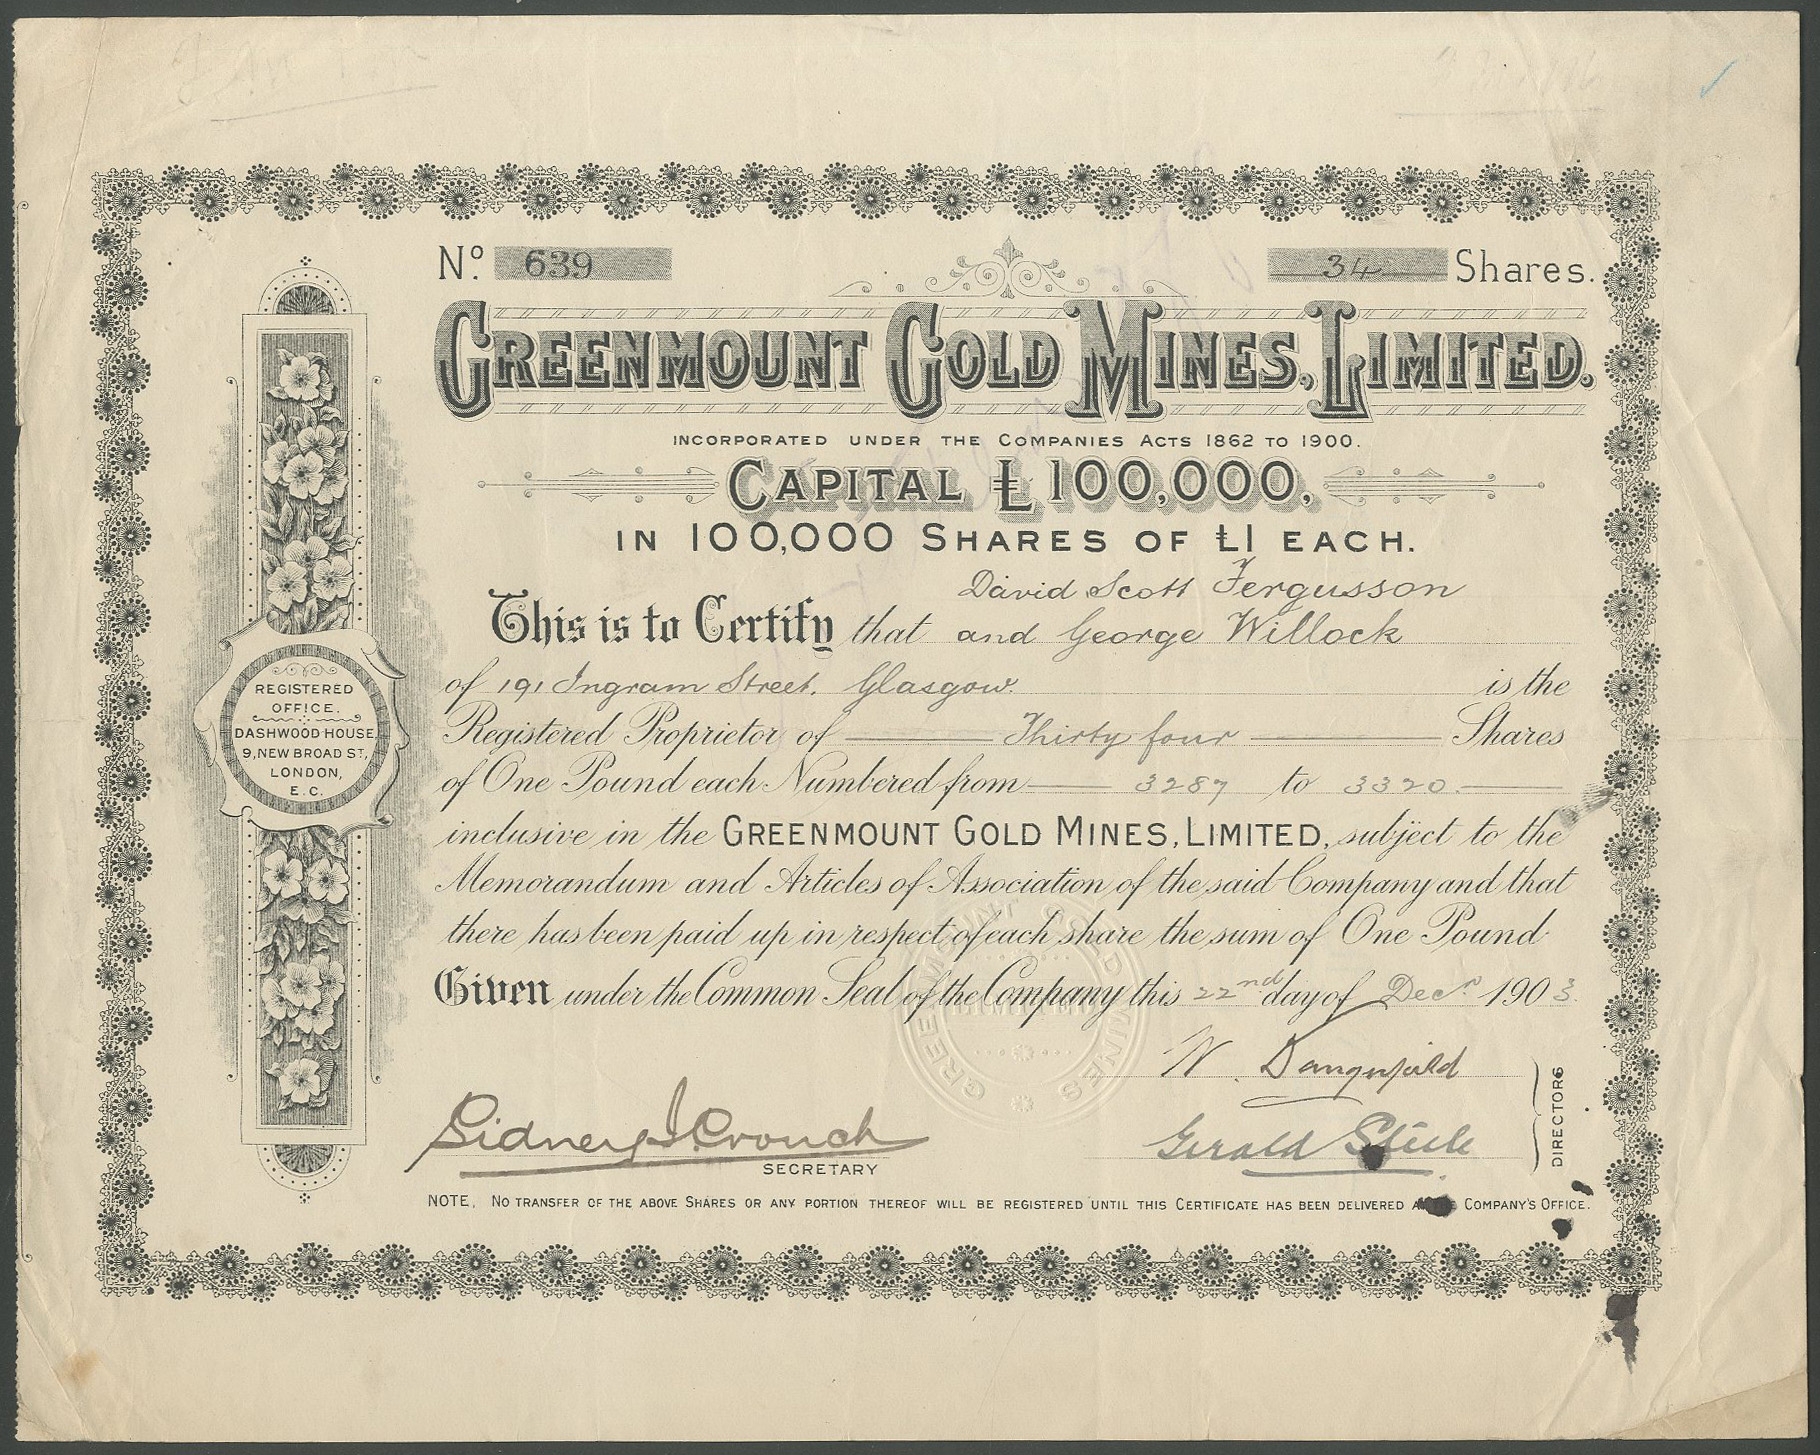 No. 639
34 Shares.
GREENMOUNT GOLD MINES, LIMITED.
INCORPORATED UNDER THE COMPANIES ACTS 1862 TO 1900.
CAPITAL £100,000,
IN 100,000 SHARES OF £1 EACH.
David Scott Fergusson
This is to Certify that and George Willock
of 191 Ingram Street, Glasgow. is the
Registered Proprietor of Thirty four Shares
of One Pound each Numbered from 3287 to 3320.
inclusive in the GREENMOUNT GOLD MINES, LIMITED, subject to the
Memorandum and Articles of Association of the said Company and that
there has been paid up in respect of each share the sum of One Pound
Given under the Common Seal of the Company this 22nd day of Decr 1903.
REGISTERED
OFFICE.
DASHWOOD HOUSE,
9, NEW BROAD ST.,
LONDON,
E.C.
GREENMOUNT GOLD MINES
LIMITED
W. Dangerfield
Gerald Steele
DIRECTORS
Sidney J. Crouch
SECRETARY
NOTE. NO TRANSFER OF THE ABOVE SHARES OR ANY PORTION THEREOF WILL BE REGISTERED UNTIL THIS CERTIFICATE HAS BEEN DELIVERED COMPANY'S OFFICE.